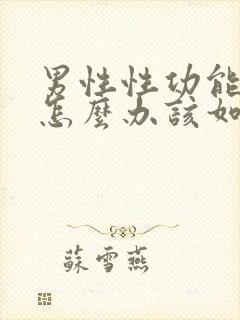 男性性功能
怎麼办該如
蘇雪燕